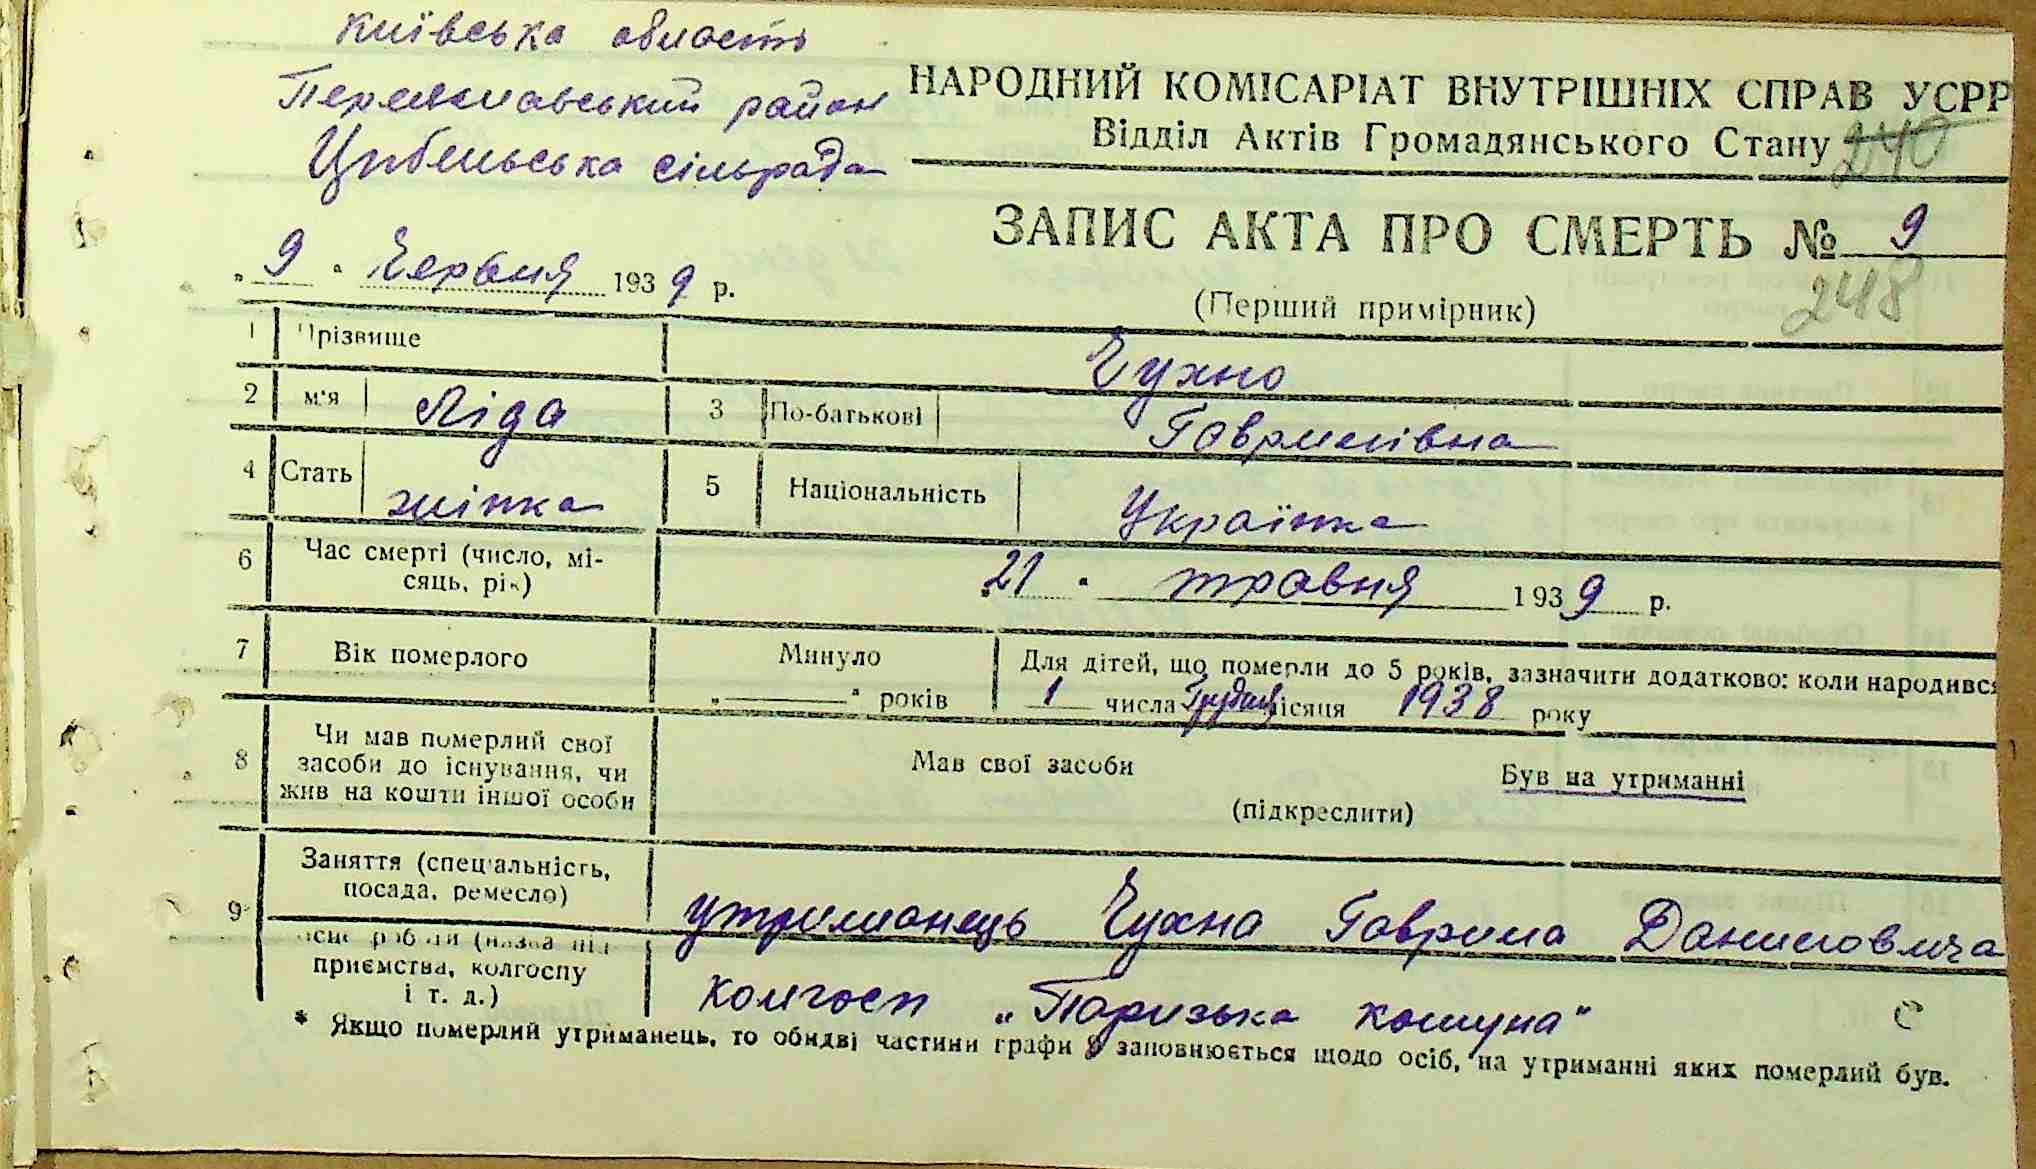 Київська область
Переяславський район
Цибельська сільрада
НАРОДНИЙ КОМІСАРІАТ ВНУТРІШНІХ СПРАВ УСРР
Відділ Актів Громадянського Стану
240
ЗАПИС АКТА ПРО СМЕРТЬ № 9
„ 9 “ Червня 1939 р.
(Перший примірник)
248
1 Прізвище Чухно
2 м'я Ліда 3 По-батькові Гаврилівна
4 Стать жінка 5 Національність Українка
6 Час смерті (число, мі-
сяць, рік) „21“ травня 1939 р.
7 Вік померлого Минуло
„ — “ років
Для дітей, що померли до 5 років, зазначити додатково: коли народився
1 числа Грудня місяця 1938 року
8 Чи мав померлий свої
засоби до існування, чи
жив на кошти іншої особи
Мав свої засоби Був на утриманні
(підкреслити)
9 Заняття (спеціальність,
посада, ремесло)
утриманець Чухна Гаврила Даниловича
місце роботи (назва під
приємства, колгоспу
і т. д.)
колгосп „Паризька комуна"
* Якщо померлий утриманець, то обидві частини графи 9 заповнюється щодо осіб, на утриманні яких померлий був.